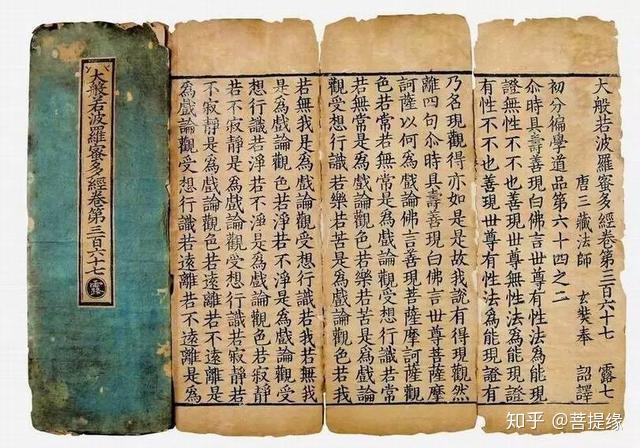 大般若波羅蜜多經卷第三百六十七 露
大般若波羅蜜多經卷第三百六十七 露七
唐三藏法師 玄奘奉 詔譯
初分徧學道品第六十四之二
尒時具壽善現白佛言世尊有性法為能現
證無性不不也善現世尊無性法為能現證
有性不不也善現世尊有性法為能現證有
乃名現觀得亦如是是故我說有得現觀然
離四句尒時具壽善現白佛言世尊菩薩摩
訶薩以何為戲論佛言善現菩薩摩訶薩觀
色若常若無常是為戲論觀受想行識若常
若無常是為戲論觀色若樂若苦是為戲論
觀受想行識若樂若苦是為戲論觀色若我
若無我是為戲論觀受想行識若我若無我
是為戲論觀色若淨若不淨是為戲論觀受
想行識若淨若不淨是為戲論觀色若寂靜
若不寂靜是為戲論觀受想行識若寂靜若
不寂靜是為戲論觀色若遠離若不遠離是
為戲論觀受想行識若遠離若不遠離是為
知乎 @菩提缘